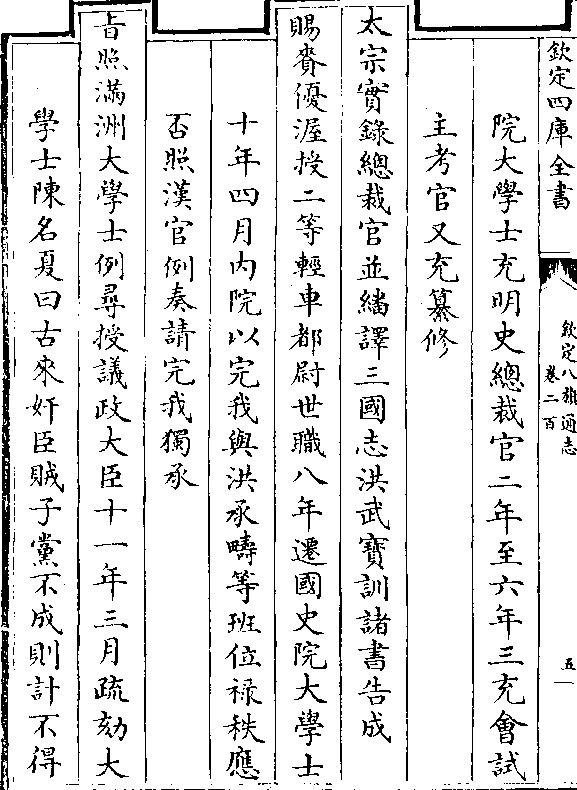 欽定四庫全書
欽定八旗通志
卷二百
五
院大學士充明史總裁官二年至六年三充會試
主考官又充纂修
太宗實錄總裁官並繙譯三國志洪武寶訓諸書告成
賜賚優渥授二等輕車都尉世職八年遷國史院大學士
十年四月內院以完我與洪承疇等班位祿秩應
否照漢官例奏請完我獨承
旨照滿洲大學士例尋授議政大臣十一年三月疏劾大
學士陳名夏曰古來奸臣賊子黨不成則計不得